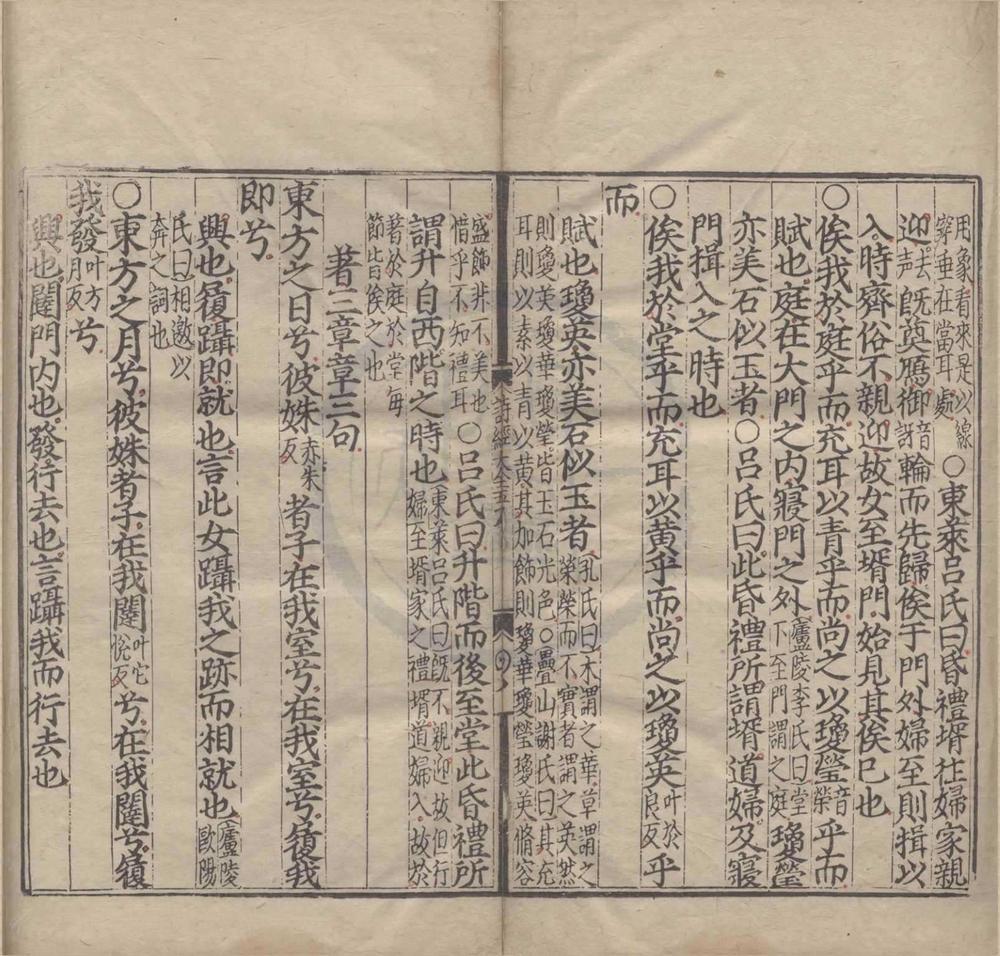 用象者來是以線穿垂在當耳處○東萊呂氏曰昏禮壻往婦家親
迎去聲旣奠鴈御音訝輪而先歸俟于門外婦至則揖以
入時齊俗不親迎故女至壻門始見其俟已也
○俟我於庭乎而充耳以青乎而尚之以瓊瑩音榮乎而
賦也庭在大門之內寢門之外廬陵李氏曰堂下至門謂之庭瓊瑩
亦美石似玉者○呂氏曰此昏禮所謂壻道婦及寢
門揖入之時也
○俟我於堂乎而充耳以黃乎而尚之以瓊英叶於良反乎
而
賦也瓊英亦美石似玉者孔氏曰木謂之華草謂之榮榮而不實者謂之英然
則瓊英瓊華瓊瑩皆玉石光色○疊山謝氏曰其充
耳則以素以青以黃其加飾則瓊華瓊瑩瓊英脩容
詩經大全五
盛飾非不美也惜乎不知禮耳○呂氏曰升階而後至堂此昏禮所
謂升自西階之時也東萊呂氏曰旣不親迎故但行婦至壻家之禮壻道婦入故於
著於庭於堂每節皆俟之也
著三章章三句
東方之日兮彼姝赤朱反者子在我室兮在我室兮履我
即兮
興也履躡即就也言此女躡我之跡而相就也廬陵歐陽
氏曰相邀以奔之詞也
○東方之月兮彼姝者子在我闥叶它悅反兮在我闥兮履
我發叶方月反兮
興也闥門內也發行去也言躡我而行去也